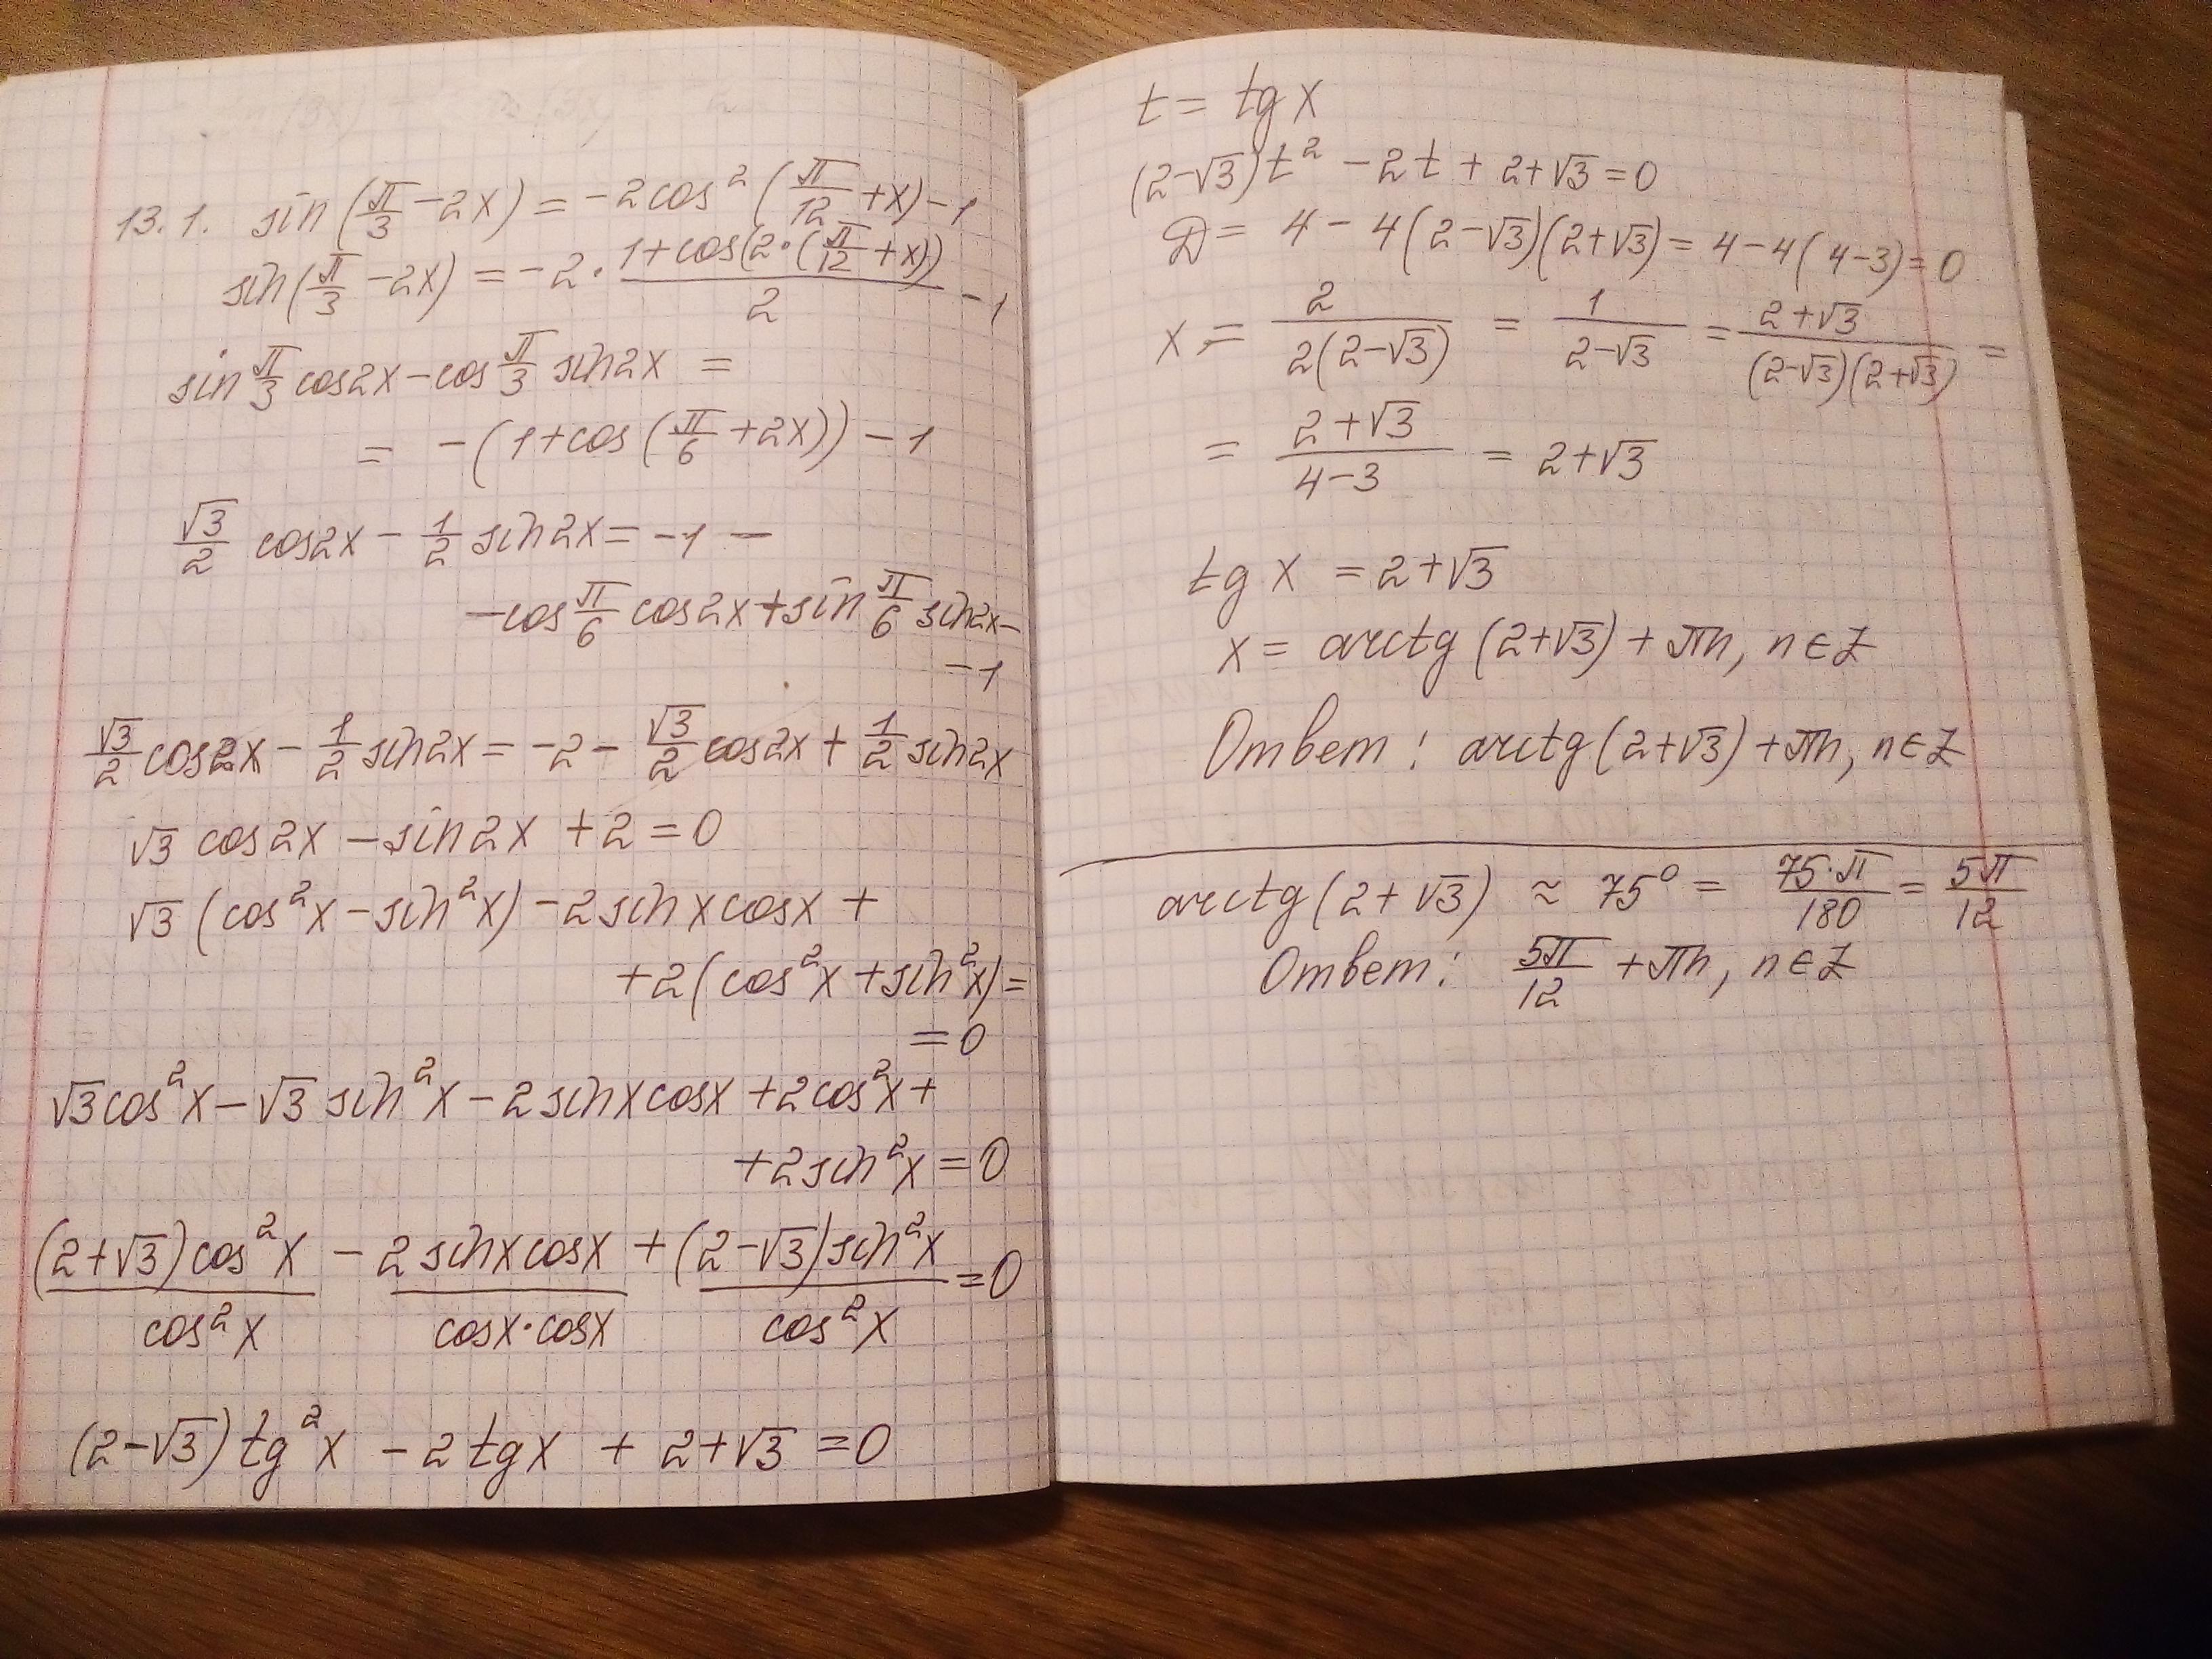 13.1. sin(π/3 - 2x) = -2cos²(π/12 + x) - 1
sin(π/3 - 2x) = -2 · (1 + cos(2·(π/12 + x)))/2 - 1
sin π/3 cos2x - cos π/3 sin2x =
= -(1 + cos(π/6 + 2x)) - 1
√3/2 cos2x - 1/2 sin2x = -1 -
- cos π/6 cos2x + sin π/6 sin2x -
- 1
√3/2 cos2x - 1/2 sin2x = -2 - √3/2 cos2x + 1/2 sin2x
√3 cos2x - sin2x + 2 = 0
√3 (cos²x - sin²x) - 2sinxcosx +
+ 2(cos²x + sin²x) =
= 0
√3cos²x - √3 sin²x - 2sinxcosx + 2cos²x +
+ 2sin²x = 0
(2+√3)cos²x/cos²x - 2sinxcosx/cosx·cosx + (2-√3)sin²x/cos²x = 0
(2-√3)tg²x - 2tgx + 2+√3 = 0
t = tg x
(2-√3)t² - 2t + 2+√3 = 0
D = 4 - 4(2-√3)(2+√3) = 4 - 4(4-3) = 0
x = 2/2(2-√3) = 1/2-√3 = 2+√3/(2-√3)(2+√3) =
= 2+√3/4-3 = 2+√3
tg x = 2+√3
x = arctg(2+√3) + πn, n∈Z
Ответ: arctg(2+√3) + πn, n∈Z
arctg(2+√3) ≈ 75° = 75·π/180 = 5π/12
Ответ: 5π/12 + πn, n∈Z